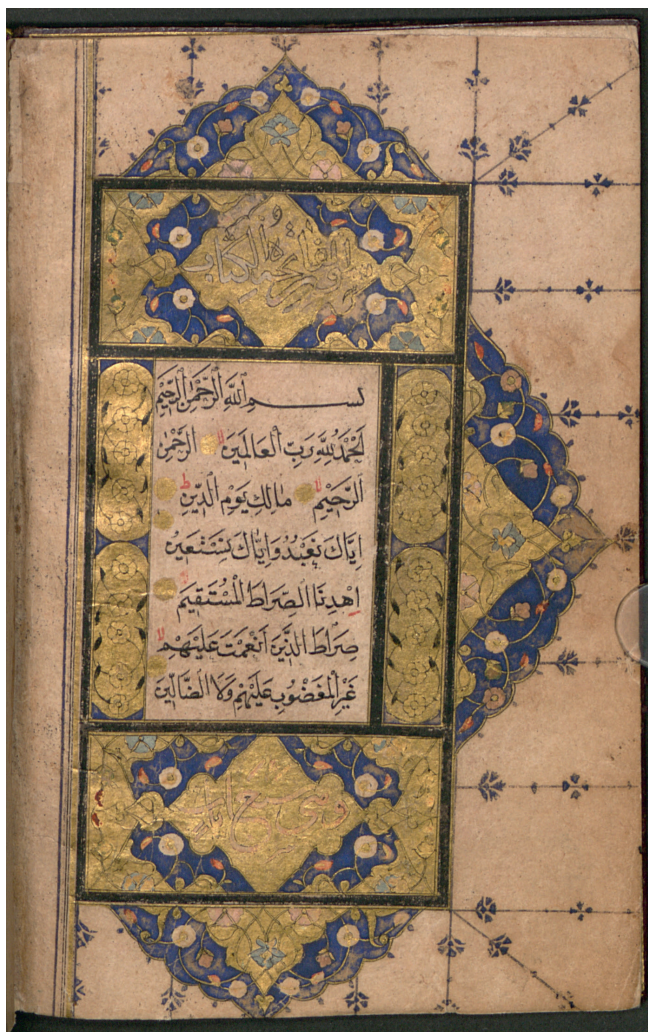 سورة فاتحة الكتاب
بسم الله الرحمن الرحيم
لحمد لله رب العالمين الرحمن
الرحيم مالك يوم الدين
اياك نعبد واياك نستعين
اهدنا الصراط المستقيم
صراط الذين انعمت عليهم
غير المغضوب عليهم ولا الضالين
وهي سبع ايات